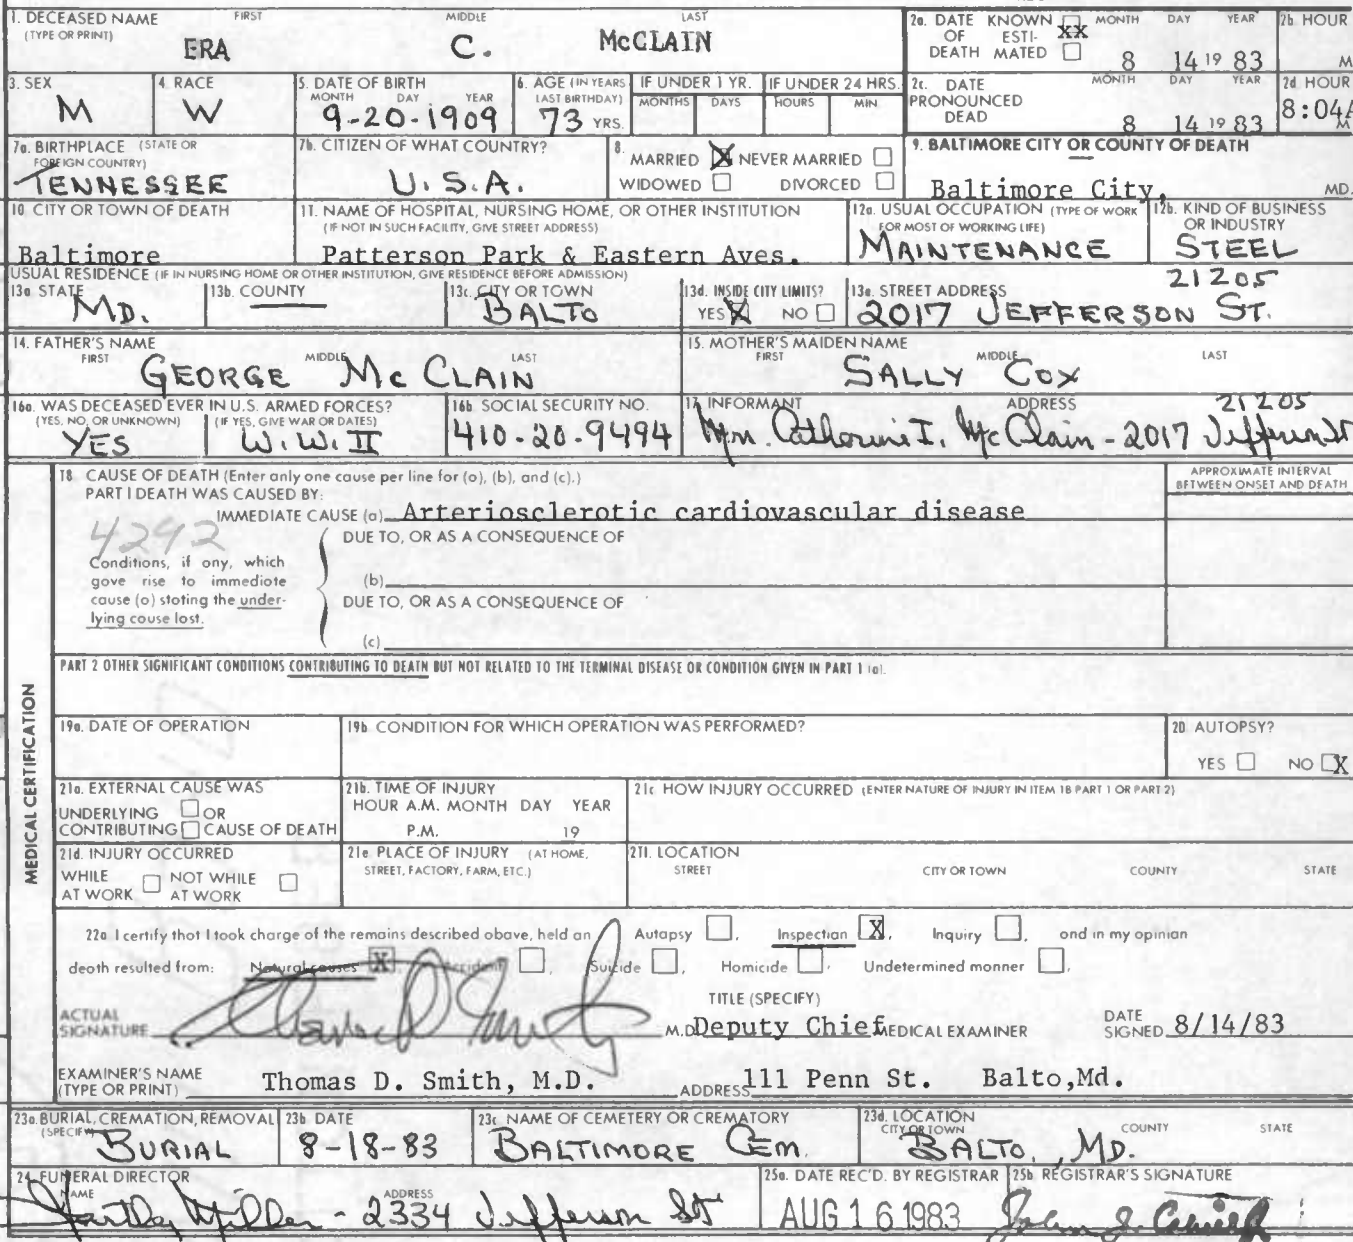 1. DECEASED NAME FIRST MIDDLE LAST
(TYPE OR PRINT)
ERA C. McCLAIN
2a. DATE KNOWN MONTH DAY YEAR
OF ESTI- XX
DEATH MATED 8 14 19 83
2b. HOUR
M
3. SEX
M
4. RACE
W
5. DATE OF BIRTH
MONTH DAY YEAR
9-20-1909
6. AGE (IN YEARS
LAST BIRTHDAY)
73 YRS.
IF UNDER 1 YR.
MONTHS DAYS
IF UNDER 24 HRS.
HOURS MIN.
2c. DATE MONTH DAY YEAR
PRONOUNCED
DEAD 8 14 19 83
2d HOUR
8:04A
M
7a. BIRTHPLACE (STATE OR
FOREIGN COUNTRY)
TENNESSEE
7b. CITIZEN OF WHAT COUNTRY?
U.S.A.
8.
MARRIED X NEVER MARRIED
WIDOWED DIVORCED
9. BALTIMORE CITY OR COUNTY OF DEATH
Baltimore City, MD.
10 CITY OR TOWN OF DEATH
Baltimore
11. NAME OF HOSPITAL, NURSING HOME, OR OTHER INSTITUTION
(IF NOT IN SUCH FACILITY, GIVE STREET ADDRESS)
Patterson Park & Eastern Aves.
12a. USUAL OCCUPATION (TYPE OF WORK
FOR MOST OF WORKING LIFE)
MAINTENANCE
12b. KIND OF BUSINESS
OR INDUSTRY
STEEL
USUAL RESIDENCE (IF IN NURSING HOME OR OTHER INSTITUTION, GIVE RESIDENCE BEFORE ADMISSION)
13a STATE
MD.
13b. COUNTY
13c. CITY OR TOWN
BALTO
13d. INSIDE CITY LIMITS?
YES X NO
13e. STREET ADDRESS 21205
2017 JEFFERSON ST.
14. FATHER'S NAME
FIRST MIDDLE LAST
GEORGE McCLAIN
15. MOTHER'S MAIDEN NAME
FIRST MIDDLE LAST
SALLY COX
16a. WAS DECEASED EVER IN U.S. ARMED FORCES?
(YES, NO, OR UNKNOWN) (IF YES, GIVE WAR OR DATES)
YES W.W. II
16b. SOCIAL SECURITY NO.
410-20-9494
17. INFORMANT ADDRESS 21205
Mrs. Catherine I. McClain - 2017 Jefferson St
18 CAUSE OF DEATH (Enter only one cause per line for (a), (b), and (c).)
PART I DEATH WAS CAUSED BY:
APPROXIMATE INTERVAL
BETWEEN ONSET AND DEATH
IMMEDIATE CAUSE (a) Arteriosclerotic cardiovascular disease
4292
DUE TO, OR AS A CONSEQUENCE OF
Conditions, if any, which
gave rise to immediate
cause (a) stating the under-
lying cause last.
(b)
DUE TO, OR AS A CONSEQUENCE OF
(c)
PART 2 OTHER SIGNIFICANT CONDITIONS CONTRIBUTING TO DEATH BUT NOT RELATED TO THE TERMINAL DISEASE OR CONDITION GIVEN IN PART 1 (a).
MEDICAL CERTIFICATION
19a. DATE OF OPERATION
19b CONDITION FOR WHICH OPERATION WAS PERFORMED?
20 AUTOPSY?
YES NO X
21a. EXTERNAL CAUSE WAS
UNDERLYING OR
CONTRIBUTING CAUSE OF DEATH
21b. TIME OF INJURY
HOUR A.M. MONTH DAY YEAR
P.M. 19
21c HOW INJURY OCCURRED (ENTER NATURE OF INJURY IN ITEM 18 PART 1 OR PART 2)
21d. INJURY OCCURRED
WHILE NOT WHILE
AT WORK AT WORK
21e PLACE OF INJURY (AT HOME,
STREET, FACTORY, FARM, ETC.)
21f. LOCATION
STREET CITY OR TOWN COUNTY STATE
22a I certify that I took charge of the remains described above, held an Autopsy , Inspection X, Inquiry , and in my opinion
death resulted from: Natural causes X Accident , Suicide , Homicide , Undetermined manner .
TITLE (SPECIFY)
ACTUAL
SIGNATURE M.D. Deputy Chief MEDICAL EXAMINER
DATE
SIGNED 8/14/83
EXAMINER'S NAME
(TYPE OR PRINT) Thomas D. Smith, M.D. ADDRESS 111 Penn St. Balto,Md.
23a. BURIAL, CREMATION, REMOVAL
(SPECIFY)
BURIAL
23b. DATE
8-18-83
23c NAME OF CEMETERY OR CREMATORY
BALTIMORE CEM.
23d. LOCATION
CITY OR TOWN COUNTY STATE
BALTO., MD.
24 FUNERAL DIRECTOR
NAME ADDRESS
Miller - 2334 Jefferson St
25a. DATE REC'D. BY REGISTRAR
AUG 16 1983
25b. REGISTRAR'S SIGNATURE
John J.